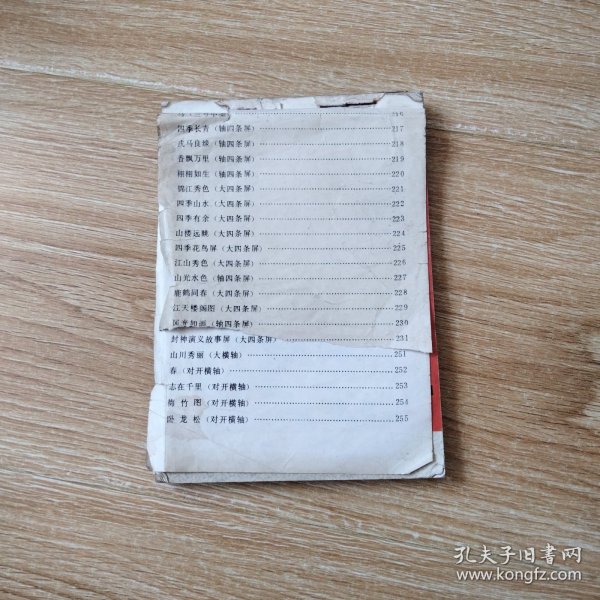 四季长青（轴四条屏）……217
戎马良缘（轴四条屏）……218
香飘万里（轴四条屏）……219
栩栩如生（轴四条屏）……220
锦江秀色（大四条屏）……221
四季山水（大四条屏）……222
四季有余（大四条屏）……223
山楼远眺（大四条屏）……224
四季花鸟屏（大四条屏）……225
江山秀色（大四条屏）……226
山光水色（轴四条屏）……227
鹿鹤同春（大四条屏）……228
江天楼阁图（大四条屏）……229
如画（轴四条屏）……230
封神演义故事屏（大四条屏）……231
山川秀丽（大横轴）……251
春（对开横轴）……252
志在千里（对开横轴）……253
梅竹图（对开横轴）……254
卧龙松（对开横轴）……255
孔夫子旧书网
www.kongfz.com